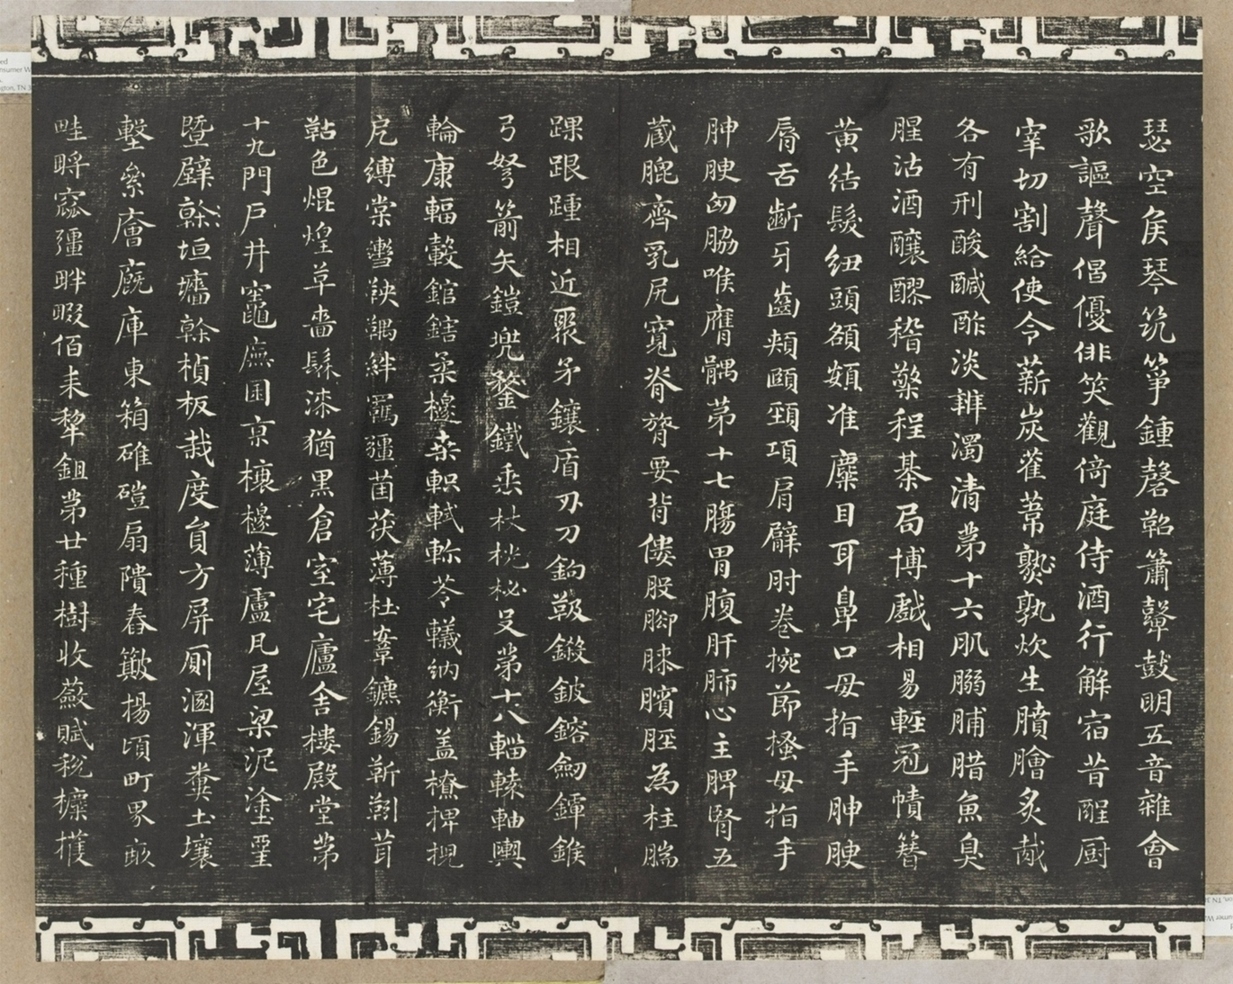 瑟空矦琴筑箏鍾磬鞀簫鼙鼓明五音雜會
歌謳聲倡優俳笑觀倚庭侍酒行觧宿昔酲厨
宰切割給使令薪炭萑葦孰炊生膹膾炙胾
各有刑酸醎酢淡辨濁清苐十六肌䐧脯腊魚臭
腥沽酒釀醪稽檠程棊局博戲相易輕冠幘簪
黄結髮紐頭頟頞准麋目耳鼻口毋指手胂腴
脣舌齗牙齒頰頤頸項肩臂肘卷捥節搔母指手
胂腴匈脇喉膺髃苐十七腸胃腹肝肺心主脾腎五
蔵膍齊乳尻寛脊膂要背僂股脚膝臏脛為柱腨
踝跟踵相近聚矛鑲盾刃刀鉤鈒鍛鈹鎔劒鐔鍭
弓弩箭矢鎧兠鍪鐵垂杖梲柲殳苐十八輜轅軸輿
輪康輻轂錧鎋柔檼桒軹軾軫苓轙納衡盖橑捭㮛
戹縛棠轡鞅韉絆羈疆茵茯薄杜鑣鍚靳茸
鞊色焜煌草嗇髹漆猶黒倉室宅廬舎樓殿堂苐
十九門戸井竈廡囷京榱檼薄盧凡屋梁泥塗堊
墍壁垣墻榦楨板栽度負方屏厠溷渾糞土壤
墼絫廥廐庫東箱碓磑扇隤舂簸揚頃町界畝
畦畤窳疆畔畷佰耒犂鉏苐廿種樹收斂賦税穫